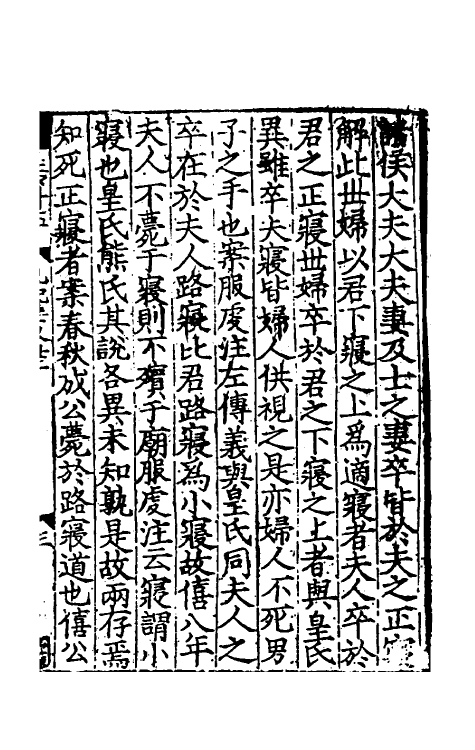 諸侯大夫大夫妻及士之妻卒皆於夫之正寢
解此世婦以君下寢之上為適寢者夫人卒於
君之正寢世婦卒於君之下寢之上者與皇氏
異雖卒夫寢皆婦人供視之是亦婦人不死男
子之手也案服虔注左傳義與皇氏同夫人之
卒在於夫人路寢比君路寢為小寢故僖八年
夫人不薨于寢則不殯于廟服虔注云寢謂小
寢也皇氏熊氏其說各異未知孰是故兩存焉
知死正寢者案春秋成公薨於路寢道也僖公